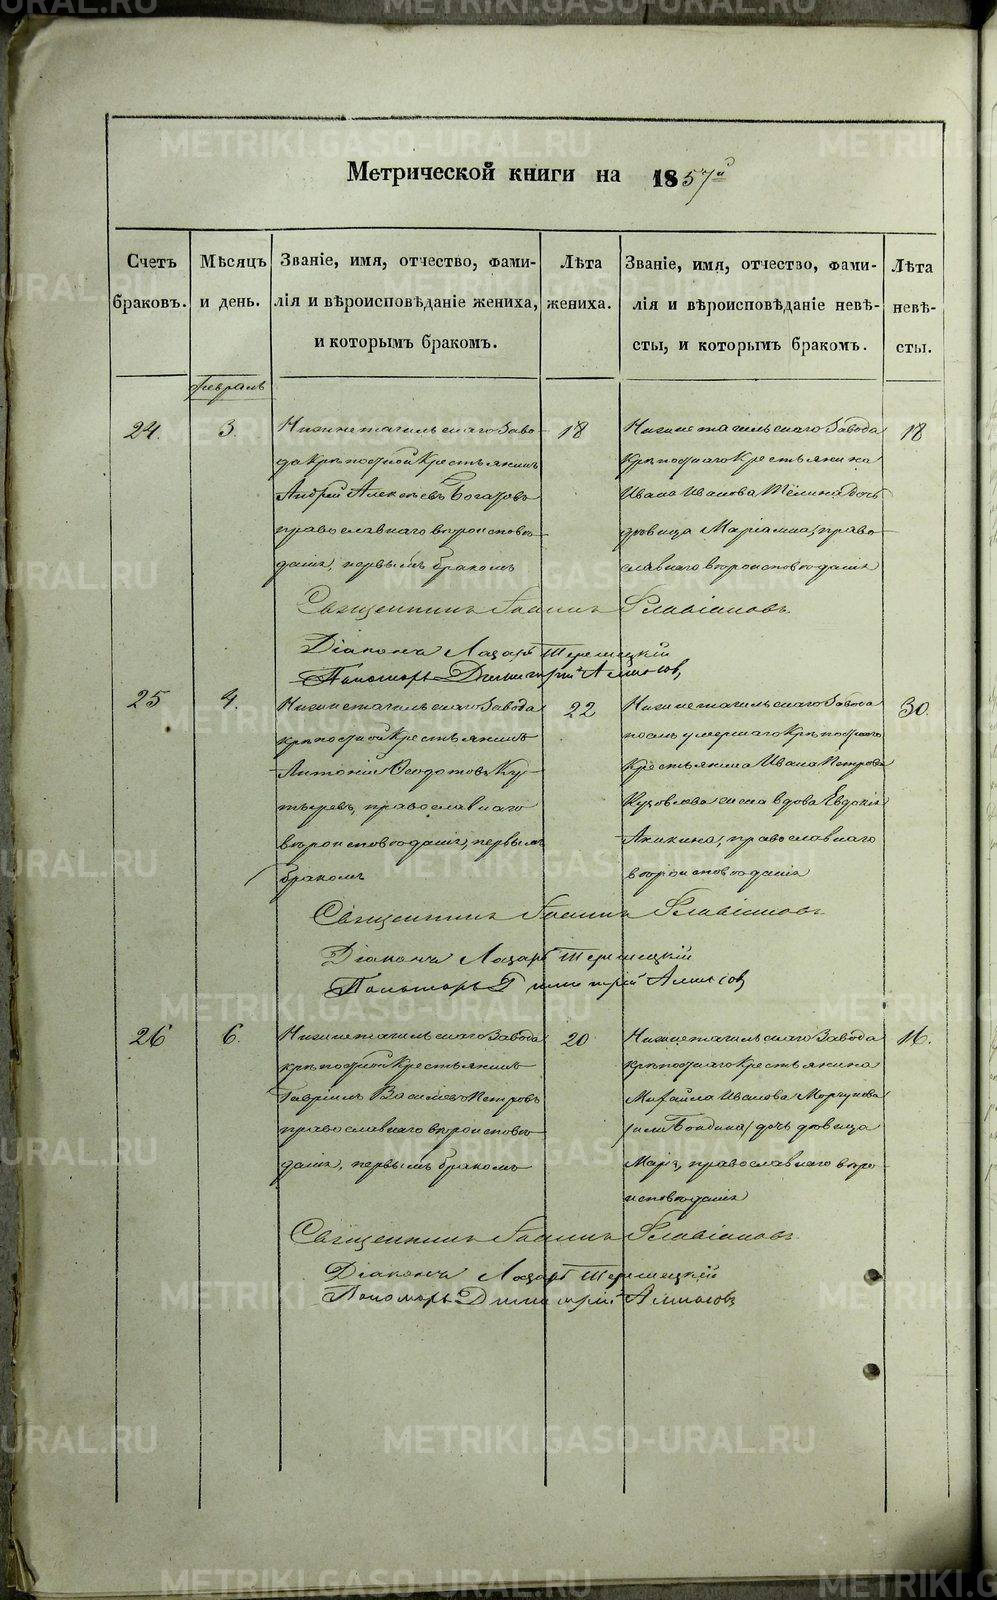 Метрической книги на 1857й
Счетъ браковъ.
Мѣсяцъ и день.
Званіе, имя, отчество, фами-
лія и вѣроисповѣданіе жениха,
и которымъ бракомъ.
Лѣта
жениха.
Званіе, имя, отчество, фами-
лія и вѣроисповѣданіе невѣ-
сты, и которымъ бракомъ.
Лѣта
невѣ-
сты.
Февраль
24. 3.
Нижнетагильскаго Заво-
да крѣпостной крестьянинъ
Андрей Алексѣевъ Богатовъ
православнаго вѣроисповѣ-
данія, первымъ бракомъ
18
Нижнетагильскаго Завода
крѣпостнаго крестьянина
Ивана Иванова дочь
дѣвица Маріамна, право-
славнаго вѣроисповѣданія
18
Священникъ Іоаннъ Флавіановъ
Діаконъ Лазарь
Пономарь Димитрій
25 4.
Нижнетагильскаго Завода
крѣпостной крестьянинъ
Антоній Ѳеодотовъ Ку-
тыревъ, православнаго
вѣроисповѣданія, первымъ
бракомъ
22
Нижнетагильскаго Завода
послѣ умершаго крѣпостнаго
крестьянина Ивана Петрова
вдова Евдокія
Аникина, православнаго
вѣроисповѣданія
30.
Священникъ Іоаннъ Флавіановъ
Діаконъ Лазарь
Пономарь Димитрій
26 6.
Нижнетагильскаго Завода
крѣпостной крестьянинъ
Гавріилъ Васильевъ Петровъ
православнаго вѣроисповѣ-
данія, первымъ бракомъ
20
Нижнетагильскаго Завода
крѣпостнаго крестьянина
Михайла Иванова Моргунова
/или Бондина/ дочь дѣвица
Марія, православнаго вѣро-
исповѣданія
16.
Священникъ Іоаннъ Флавіановъ
Діаконъ Лазарь
Пономарь Димитрій
METRIKI.GASO-URAL.RU